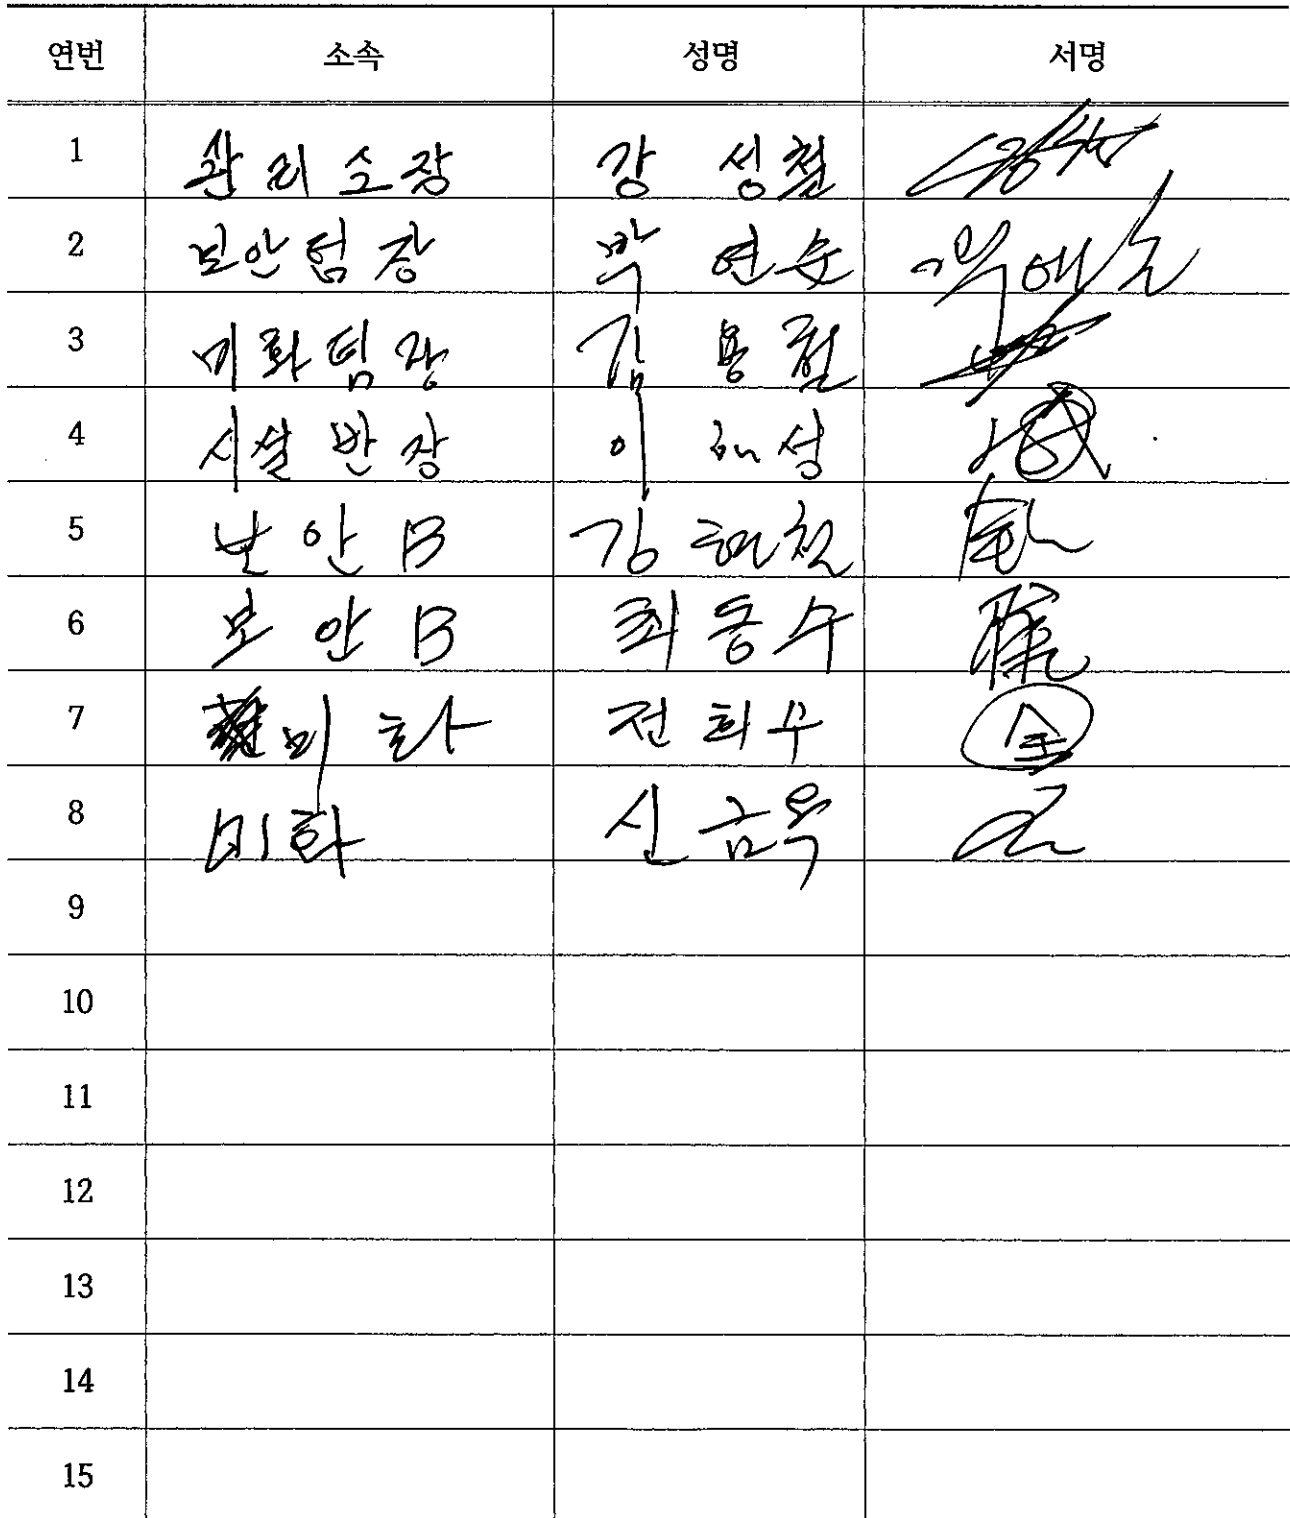 연번 소속 성명 서명
1 관리소장 강 성철
2 보안팀장 박 연순
3 미화팀장 김 용철
4 시설반장 이 해성
5 보안B 강현철
6 보안B 최동수
7 미화 전희우
8 미화 신금옥
9
10
11
12
13
14
15